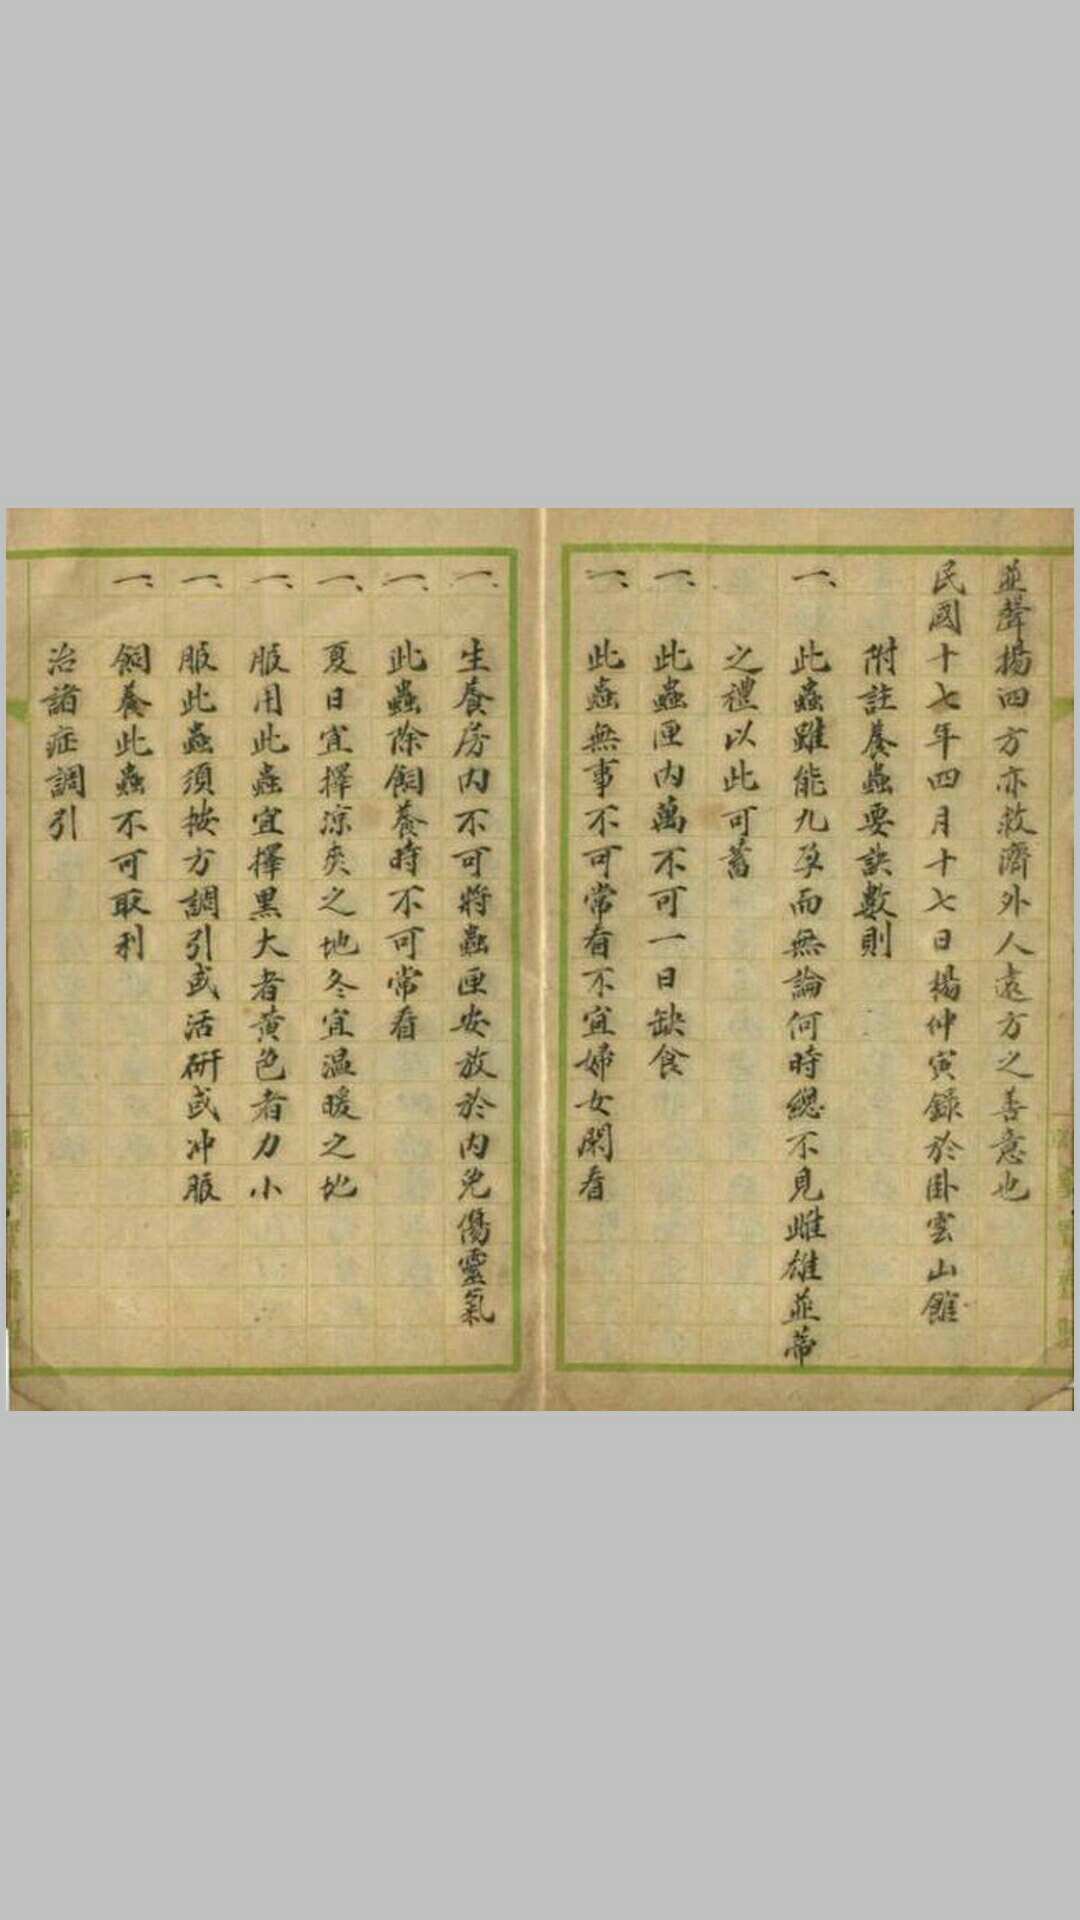 並聲揚四方亦救濟外人遠方之善意也
民國十七年四月十七日楊仲寅錄於卧雲山館
附註養蟲要訣數則
一、此蟲雖能九孕而無論何時總不見雌雄並蒂
之禮以此可蓄
一、此蟲匣内萬不可一日缺食
一、此蟲無事不可常看不宜婦女閑看
一、生養房内不可將蟲匣安放於内免傷靈氣
一、此蟲除飼養時不可常看
一、夏日宜擇凉爽之地冬宜温暖之地
一、服用此蟲宜擇黑大者黄色者力小
一、服此蟲須按方調引或活研或冲服
一、飼養此蟲不可取利
治諸症調引